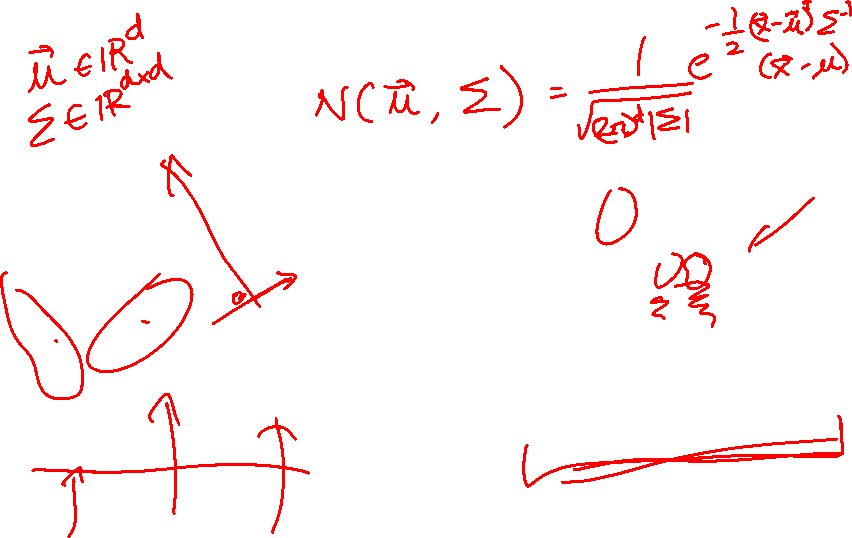 μ⃗ ∈ ℝ^d
Σ ∈ ℝ^{d×d}
N(μ⃗, Σ) = 1/√((2π)^d |Σ|) e^{-1/2 (x⃗-μ⃗)^T Σ^{-1} (x⃗-μ)}